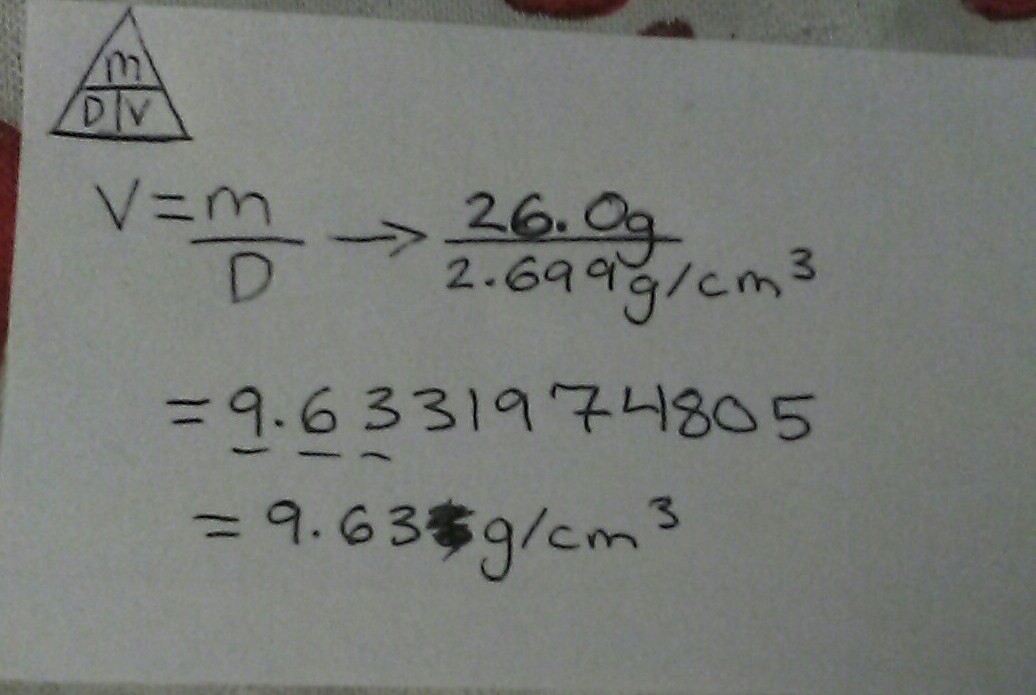 m
D V
V = m/D → 26.0g/2.699g/cm³
= 9.6331974805
= 9.63 g/cm³